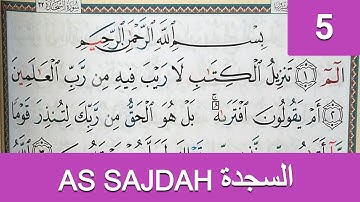 5
بِسْمِ اللَّهِ الرَّحْمَٰنِ الرَّحِيمِ
الٓمٓ ۝١ تَنزِيلُ الْكِتَٰبِ لَا رَيْبَ فِيهِ مِن رَّبِّ الْعَٰلَمِينَ
۝٢ أَمْ يَقُولُونَ افْتَرَىٰهُ ۚ بَلْ هُوَ الْحَقُّ مِن رَّبِّكَ لِتُنذِرَ قَوْمًا
AS SAJDAH السجدة